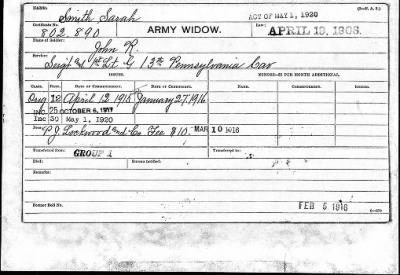 NAME:
Smith Sarah
ACT OF MAY 1, 1920
Certificate No.:
802,890
ARMY WIDOW.
Law:
APRIL 19, 1908.
Name of Soldier:
John R.
Service:
Sergt and 1st Lt. G 13th Pennsylvania Cav
ISSUES.
MINORS—$2 PER MONTH ADDITIONAL.
CLASS.
RATE.
DATE OF COMMENCEMENT.
DATE OF CERTIFICATE.
NAME.
COMMENCEMENT.
ENDING.
Orig 12 April 12 1915 January 27, 1916
Inc 25 OCTOBER 6, 1917
Inc 30 May 1, 1920
P. J. Lockwood and Co. Fee $10. MAR 10 1916
Transferred from:
GROUP 1
Transferred to:
Died:
Bureau notified:
Remarks:
Former Roll No.
FEB 5 1916